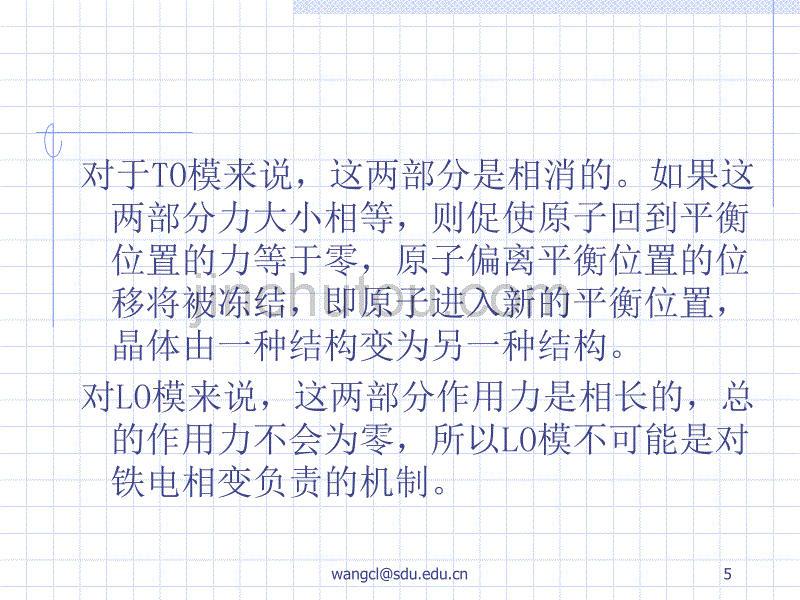 对于TO模来说，这两部分是相消的。如果这
两部分力大小相等，则促使原子回到平衡
位置的力等于零，原子偏离平衡位置的位
移将被冻结，即原子进入新的平衡位置，
晶体由一种结构变为另一种结构。
对LO模来说，这两部分作用力是相长的，总
的作用力不会为零，所以LO模不可能是对
铁电相变负责的机制。
jinchutou.com
wangcl@sdu.edu.cn
5